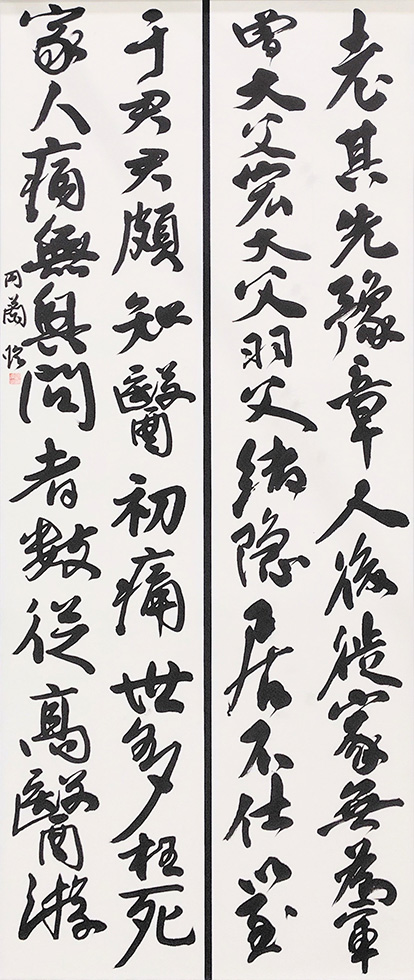 老其先豫章人後徙家無為軍
曾大父宏大父羽父緒隐居不仕以至
于君君頗知醫初痛世多枉死
家人病無與問者數從高醫游